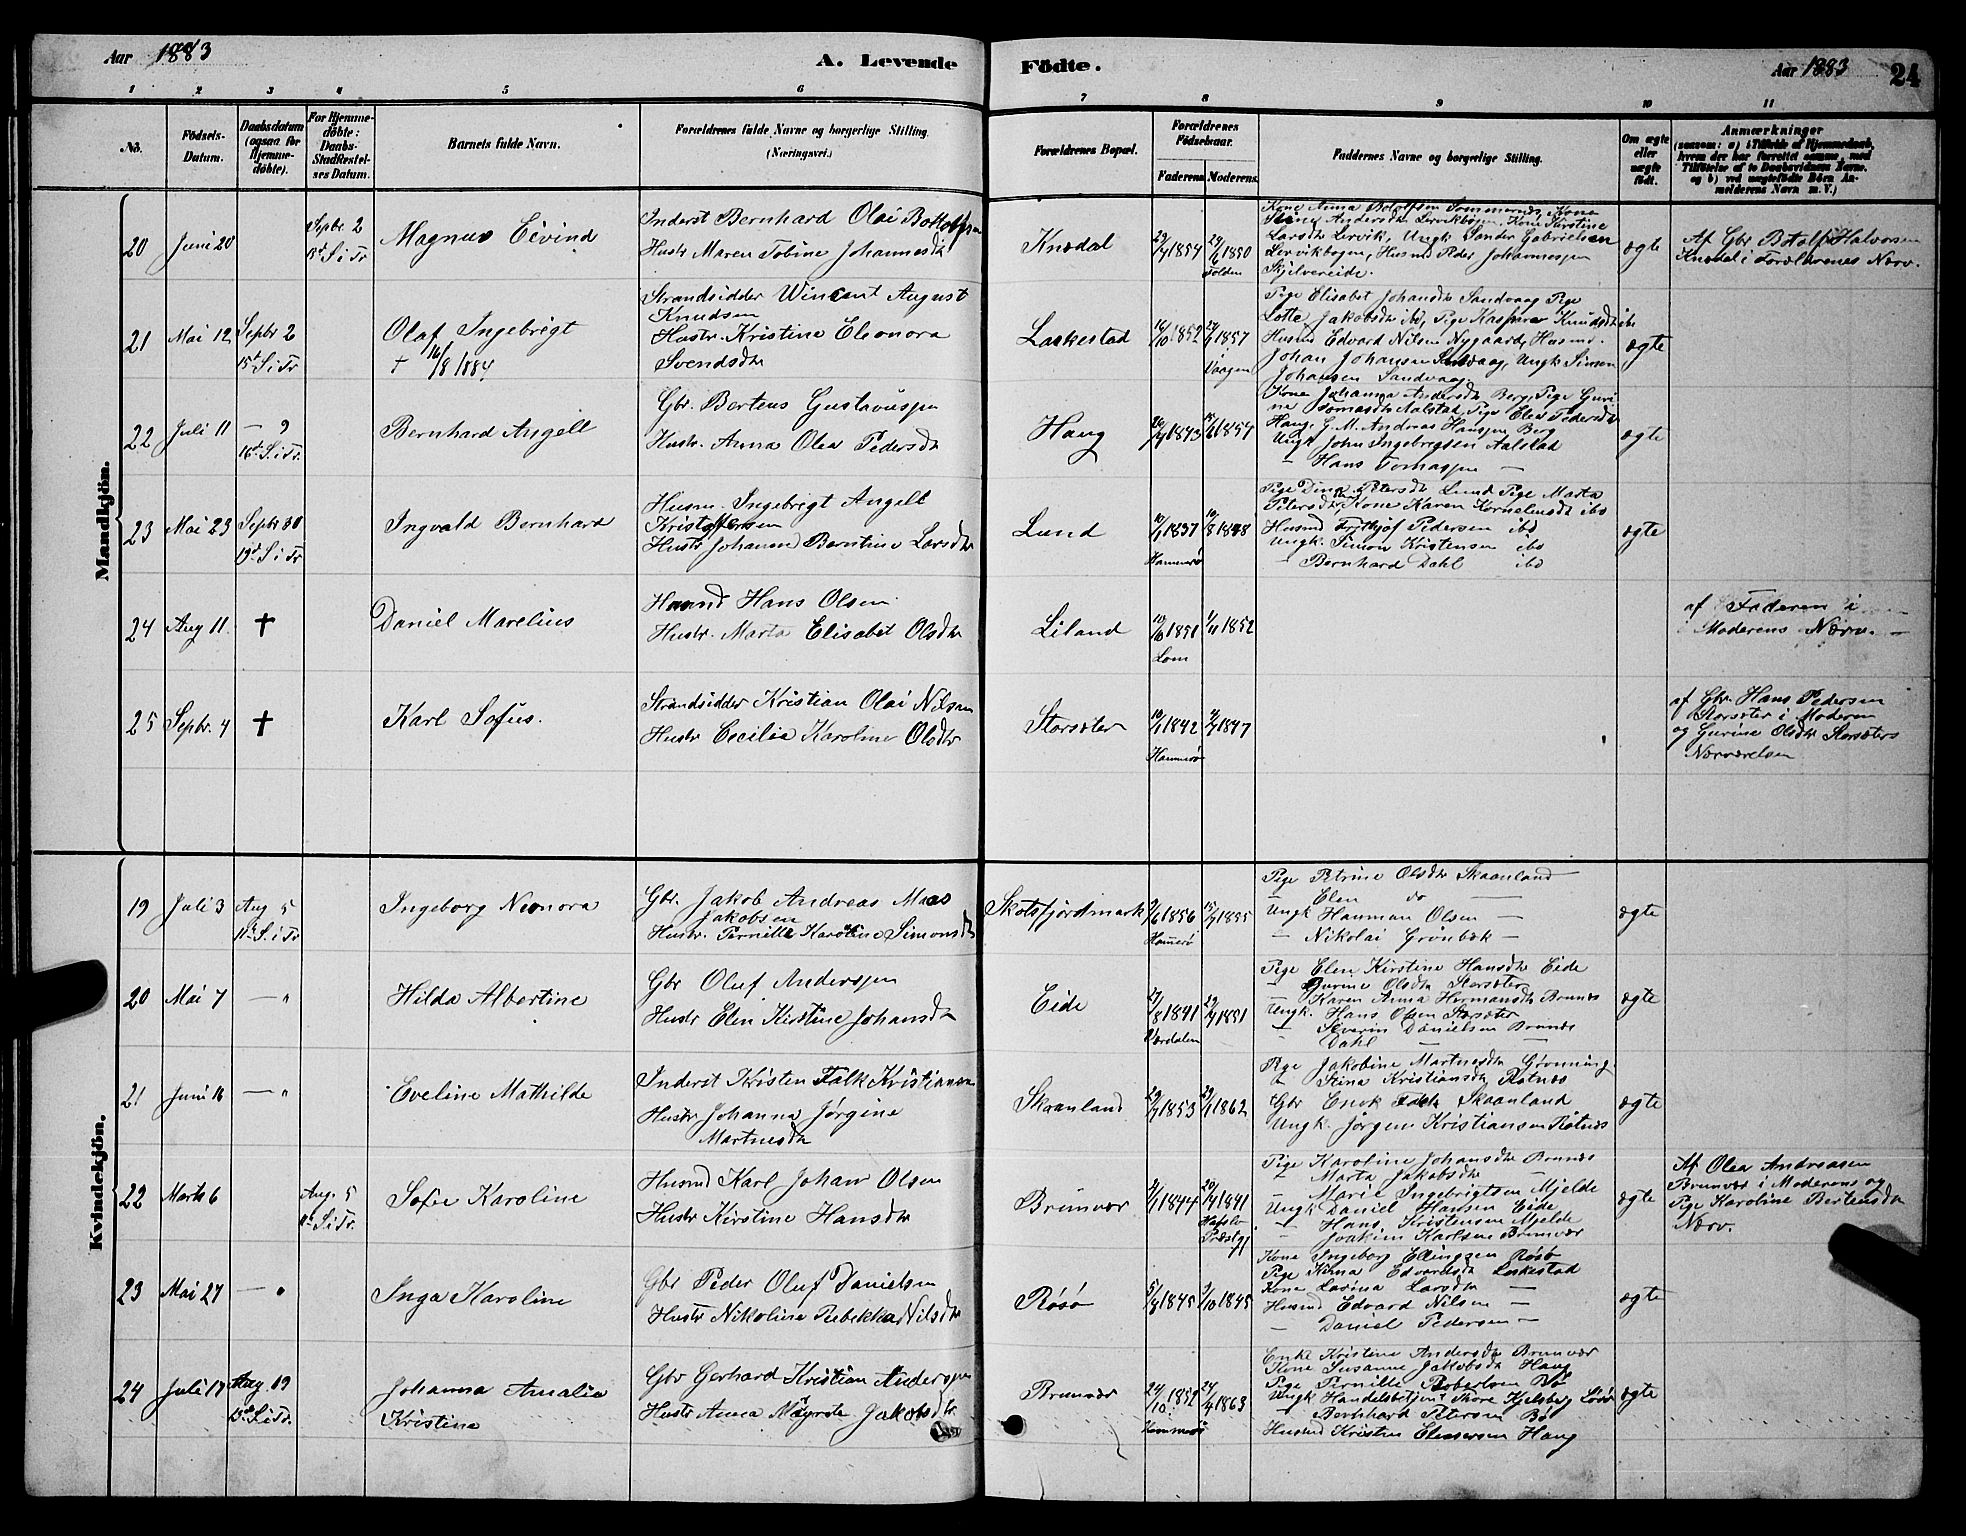 Aar 1883
A. Levende Födte.
Aar 1883 24
1 2 3 4 5 6 7 8 9 10 11
No.
Födsels-Datum.
Daabsdatum (ogsaa for Hjemme-döbte).
For Hjemme-döbte: Daabs-Stadfæstel-ses Datum.
Barnets fulde Navn.
Forældrenes fulde Navne og borgerlige Stilling. (Næringsvei.)
Forældrenes Bopæl.
Forældrenes Födselsaar.
Faderens. Moderens.
Faddernes Navne og borgerlige Stilling.
Om ægte eller uægte födt.
Anmærkninger
Mandkjön.
20 Juni 20
Sepbr. 2
15d S. i Tr
Magnus Eivind
Inderst Bernhard Olai Botolfsen
Hustr. Maren Tobine Johannesdtr
Knædal
29/4 1854 24/6 1850
Folden
Kone Anna Botolfsen Sommernes, Kone
Stina Andersdtr Lervikbogen, Kone Kirstine
Larsdtr Lervik, Ungk Sander Gabrielsen
Lervikbogen, Husmd Peder Johannessen
Skjelvereide.
ægte
Af Gbr. Botolf Halvorsen
Knædal i Forældrenes Nærv.
21 Mai 12 Sepbr 2
15d S i Tr
Olaf Ingebrigt
† 16/8 1884
Strandsidder Wincent August
Knudsen
Hustr. Kristine Eleonora
Svendsdtr
Laskestad
1852 1857
Vaagen
Pige Elisabet Johansdtr Sandvaag Pige
Lotte Jakobsdtr ibd, Pige Kaspara Knudsdtr ibd
Husmd Edvard Nilsen Nygaard, Husmd.
Johan Johansen Sandvaag, Ungk Simon
Johansen Sandvaag
ægte
22 Juli 11 — "
16d S. i Tr.
Bernhard Angell
Gbr. Berteus Gustavussen
Hustr. Anna Olea Pedersdtr
Haug
1843 1854
Kone Johanna Andersdtr Berg, Pige Guri-
ne Tomasdtr Aalstad, Pige Elea Pedersdtr
Haug, G. M. Andreas Hanssen Berg
Ungk John Ingebrigtsen Aalstad
— Hans Tomassen —
ægte
23 Mai 23 Sepbr 30
19d S i Tr
Ingvald Bernhard
Husm. Ingebrigt Angell
Kristoffersen
Hustr Johanna Berntine Larsdtr
Lund
1837 1848
Hammerø
Pige Dina Petersdtr Lund Pige Marta
Petersdtr, Kone Karen Kornelensdtr ibd
Husmd Frithjof Pedersen ibd
Ungk. Simon Kristensen ibd
— Bernhard Dahl ibd
ægte
24 Aug 11. †
Daniel Marelius
Husmd Hans Olsen
Hustr. Marta Elisabet Olsdtr
Liland
1851 1/11 1852
Lom
af Faderen i
Moderens Nærv. —
25 Sepbr. 4 †
Karl Sofus.
Strandsidder Kristian Olai Nilsen
Hustr Cecilia Karoline Olsdtr
Storsæter
1842 1847
Hammerø
af Gbr. Hans Pedersen
Storsæter i Moderen
og Gurine Olsdtr Storsæters
Nærværelsen
Kvindekjön.
19 Juli 3 Aug 5
11d S. i Tr
Ingeborg Neonora
Gbr. Jakob Andreas Maas
Jakobsen
Hustr. Pernille Karoline Simonsdtr
Skotsfjordmark
9/6 1856 15/9 1855
Hamerø
Pige Petrine Olsdtr Skaanland
— Elen do —
Ungk Hanman Olsen —
— Nikolai Grönbæk —
ægte
20 Mai 7 — "
Hilda Albertine
Gbr Oluf Anderssen
Hustr Elen Kirstine Johansdtr
Eide
27/8 1841 1851
Værdalen
Pige Elen Kirstine Hansdtr Eide
— Gurine Olsdtr Storsæter
— Karen Anna Hermansdtr Brunæs
Ungk. Hans Olsen Storsæter
— Severin Danielsen Brunæs
— Dahl —
ægte
21 Juni 16 — "
Eveline Mathilde
Inderst Kristen Falk Kristiansen
Hustr Johanna Jørgine
Martnesdtr
Skaanland
1853 1862
Pige Jakobine Martnesdtr Grønning
— Stina Kristiansdtr Rotnæs
Gbr Enok Falch Skaanland
Ungk. Jörgen Kristiansen Rotnæs
ægte
22 Marts 6
Aug. 5
11d S i Tr.
Sofie Karoline
Husmd Karl Johan Olsen
Hustr Kirstine Hansdtr
Brunvær
1844 20/4 1841
Hafslo
Præstgj
Pige Karoline Johansdtr Brunæs
— Marta Jakobsdtr —
— Marie Ingebrigtsen Mjelde
Ungk Daniel Hansen Eide
— Hans Kristensen Mjelde
— Joakim Karlsen Brunvær
ægte
Af Olea Andreasen
Brunvær i Moderens og
Pige Karoline Bertensdtr
Nærv.
23 Mai 27 — "
Inga Karoline
Gbr Peder Oluf Danielsen
Hustr Nikoline Rebekka Nilsdtr
Røsø
1845 9/10 1845
Kone Ingeborg Ellingsen Røsø
Pige Kirna Edvardsdtr Laskestad
Kone Lavina Larsdtr —
Husmd Edvard Nilsen —
— Daniel Pedersen —
ægte
24 Juli 17 Aug. 19
13d S. i Tr.
Johanna Amalia
Kristina
Gbr Gerhard Kristian Anderssen
Hustr Anna Margrete Jakobsdtr
Brunvær
24/10 1852 1863
Hammerø
Enke Kristine Andersdtr Brunvær
Kone Susanne Jakobsdtr Haug
Pige Pernille Robertsen Bø
Ungk Handelsbetjent Thore Kjelsberg
— Bernhard Petersen Bø
Husmd Kristen Haug
ægte